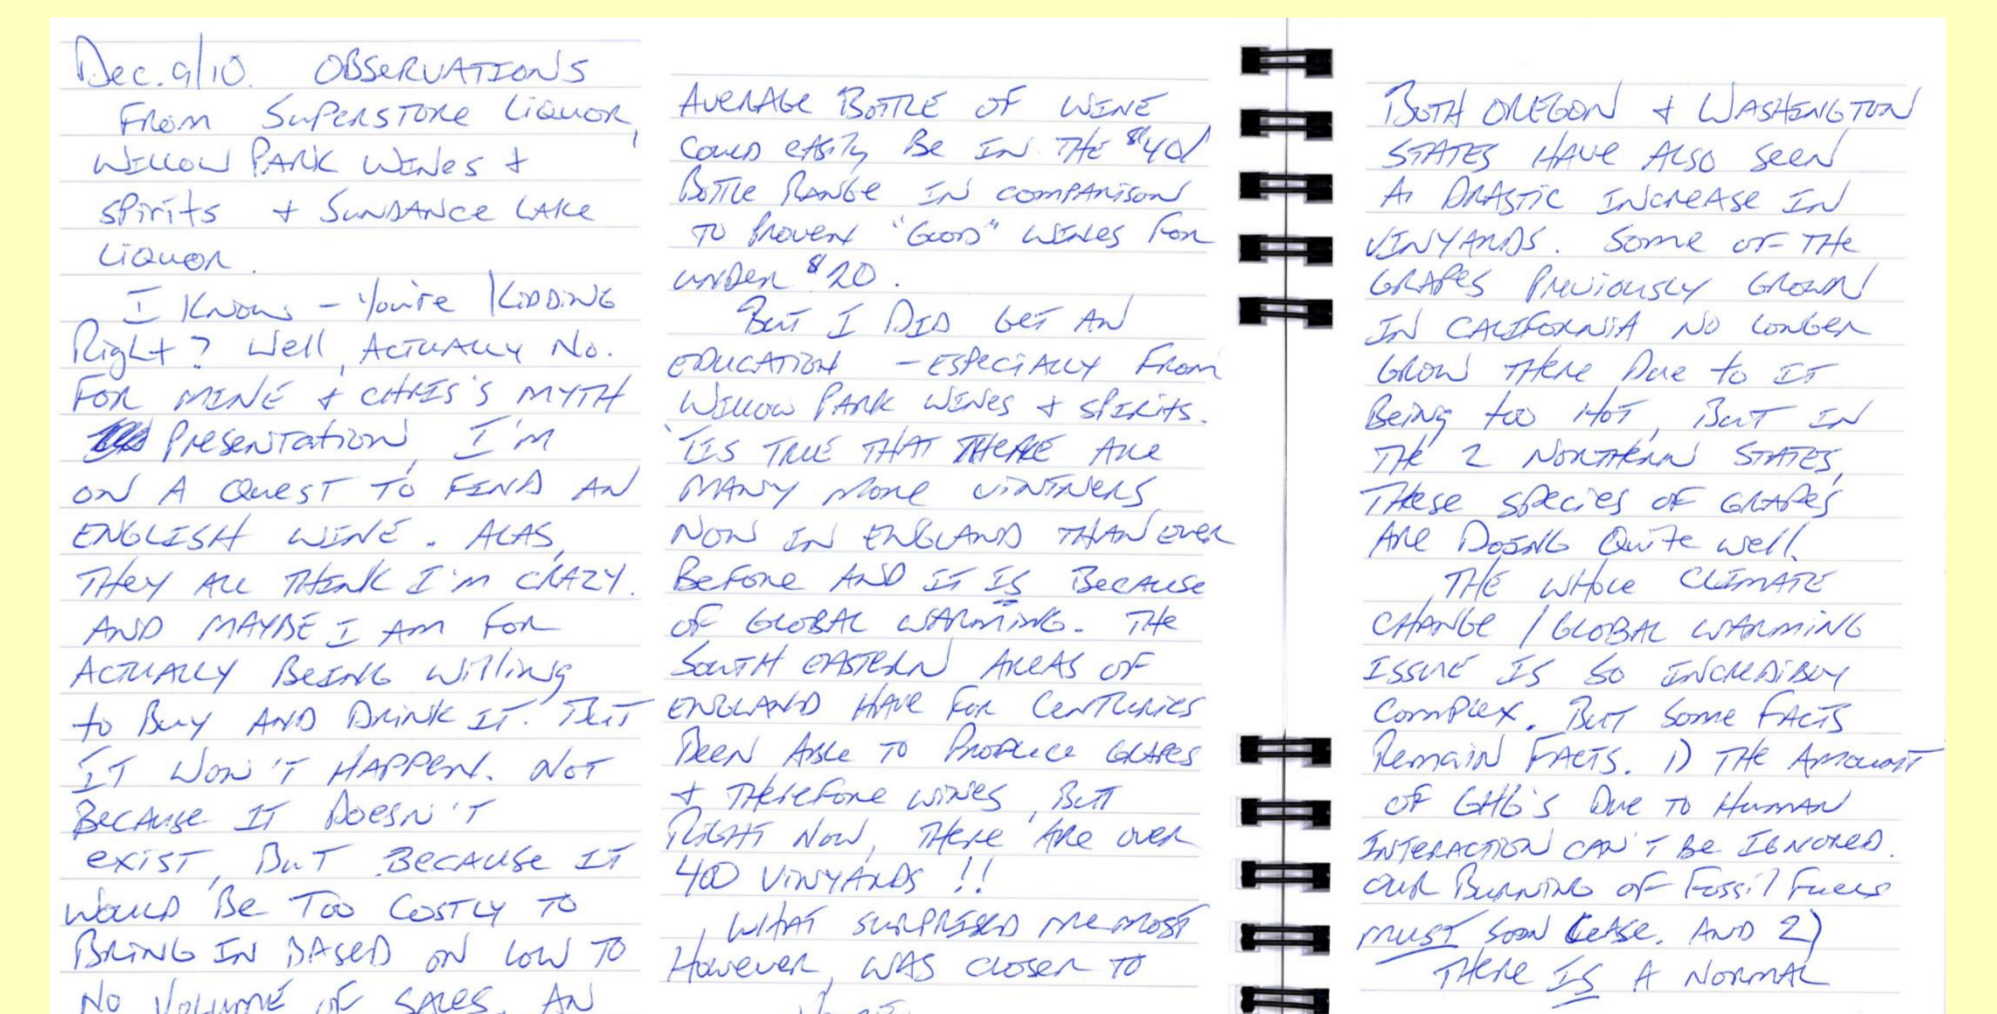 Dec. 9/10. OBSERVATIONS
FROM SUPERSTORE LIQUOR,
WILLOW PARK WINES +
SPIRITS + SUNDANCE LAKE
LIQUOR.
I KNOW - You're KIDDING
Right? Well, ACTUALLY No.
FOR MINE + CHRIS'S MYTH
PRESENTATION, I'M
ON A QUEST TO FIND AN
ENGLISH WINE. ALAS,
THEY ALL THINK I'M CRAZY.
AND MAYBE I AM FOR
ACTUALLY BEING willing
to Buy AND DRINK IT. BUT
IT WON'T HAPPEN. NOT
BECAUSE IT DOESN'T
EXIST, BUT BECAUSE IT
WOULD BE TOO COSTLY TO
BRING IN BASED ON LOW TO
NO VOLUME OF SALES. AN
AVERAGE BOTTLE OF WINE
COULD EASILY BE IN THE $40/
BOTTLE RANGE IN COMPARISON
TO PROVEN "GOOD" WINES FOR
UNDER $20.
BUT I DID GET AN
EDUCATION - ESPECIALLY FROM
WILLOW PARK WINES + SPIRITS.
'TIS TRUE THAT THERE ARE
MANY MORE VINTNERS
NOW IN ENGLAND THAN EVER
BEFORE AND IT IS BECAUSE
OF GLOBAL WARMING. THE
SOUTH EASTERN AREAS OF
ENGLAND HAVE FOR CENTURIES
BEEN ABLE TO PRODUCE GRAPES
+ THEREFORE WINES, BUT
RIGHT NOW, THERE ARE OVER
400 VINYARDS !!
WHAT SURPRISED ME MOST
HOWEVER, WAS CLOSER TO
BOTH OREGON + WASHINGTON
STATES HAVE ALSO SEEN
A DRASTIC INCREASE IN
VINYARDS. SOME OF THE
GRAPES PREVIOUSLY GROWN
IN CALIFORNIA NO LONGER
GROW THERE DUE to IT
BEING too HOT, BUT IN
THE 2 NORTHERN STATES,
THESE SPECIES OF GRAPES
ARE DOING QUITE well.
THE WHOLE CLIMATE
CHANGE / GLOBAL WARMING
ISSUE IS SO INCREDIBLY
COMPLEX. BUT SOME FACTS
REMAIN FACTS. 1) THE AMOUNT
OF GHG'S DUE TO HUMAN
INTERACTION CAN'T BE IGNORED.
OUR BURNING OF FOSSIL FUELS
MUST SOON CEASE. AND 2)
THERE IS A NORMAL